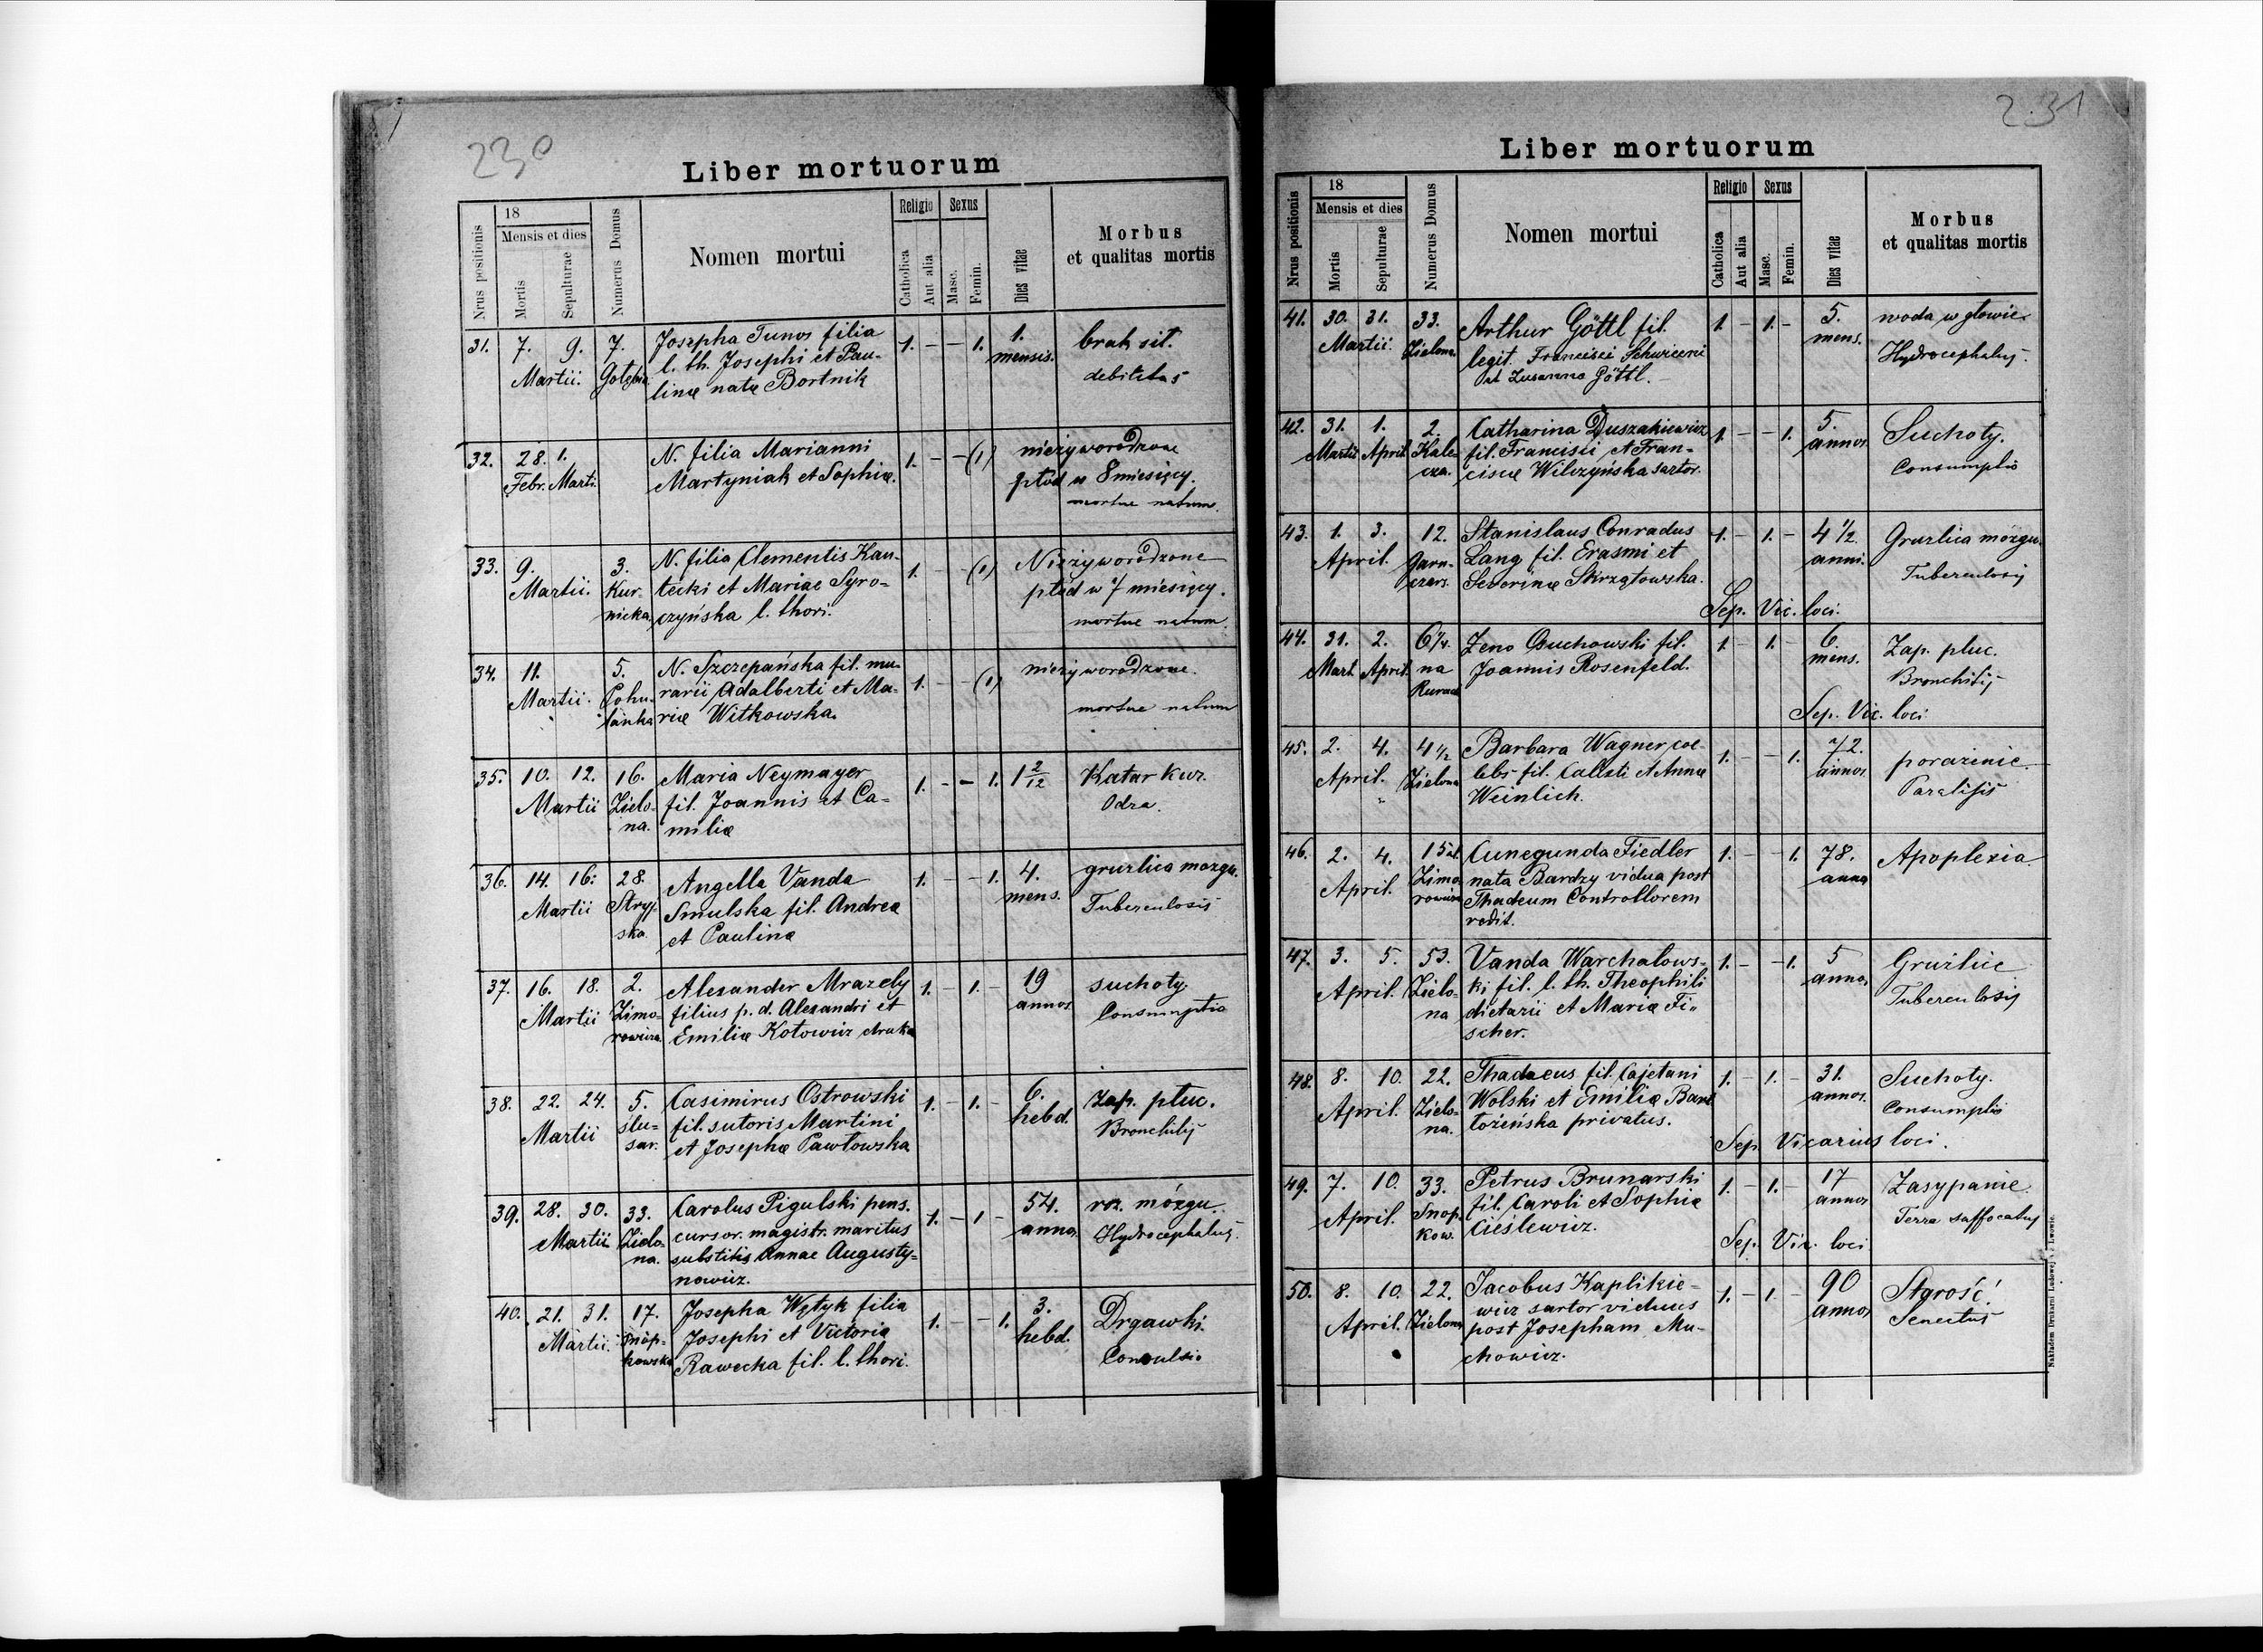 230
Liber mortuorum
Nrus positionis
18
Mensis et dies
Mortis
Sepulturae
Numerus Domus
Nomen mortui
Religio
Catholica
Aut alia
Sexus
Masc.
Femin.
Dies vitae
Morbus
et qualitas mortis
31. 7. 9. 7. Josepha Tunos filia 1. – – 1. 1. brak sił.
Martii. Gołębia l. th. Josephi et Pau- mensis. debilitas
linæ natæ Bortnik
32. 28. 1. N. filia Marianni 1. – – (1) nieżyworodzone
Febr. Marti. Martyniak et Sophiæ. płód w 8 miesięcy.
mortue natum.
33. 9. 3. N. filia Clementis Kan- 1. – – (1) Nieżyworodzone
Martii. Kur- tecki et Mariae Syro- płód w 7 miesięcy.
nicka czyńska l. thori. mortue natum
34. 11. 5. N. Szczepańska fil. mu- 1. – – (1) nieżyworodzone.
Martii. Pohu- rarii Adalberti et Ma-
lanka riæ Witkowska. mortue natum
35. 10. 12. 16. Maria Neymayer 1. – – 1. 1 2/12 Katar kur.
Martii Zielo- fil. Joannis et Ca- Odra.
na. miliæ
36. 14. 16. 28. Angella Vanda 1. – – 1. 4. gruzlica mozgu.
Martii Stryj- Smulska fil. Andreæ mens. Tuberculosis
ska. et Paulinæ
37. 16. 18. 2. Alexander Mrazely 1. – 1. – 19 suchoty
Martii Zimo- filius p. d. Alexandri et annos. Consumptio
rowicza Emiliæ Kotowicz
38. 22. 24. 5. Casimirus Ostrowski 1. – 1. – 6. Zap. płuc.
Martii ślu- fil. sutoris Martini hebd. Bronchitis
sar. et Josephæ Pawłowska
39. 28. 30. 33. Carolus Pigulski pens. 1. – 1 – 54. roz. mózgu.
Martii Zielo- cursor. magistr. maritus annos. Hydrocephalus.
na. substitis Annae Augusty-
nowicz.
40. 21. 31. 17. Josepha Wątyk filia 1. – – 1. 3. Drgawki.
Martii. Snop- Josephi et Victoriæ hebd. Convulsio
kowska Rawecka fil. l. thori.
231
Liber mortuorum
Nrus positionis
18
Mensis et dies
Mortis
Sepulturae
Numerus Domus
Nomen mortui
Religio
Catholica
Aut alia
Sexus
Masc.
Femin.
Dies vitae
Morbus
et qualitas mortis
41. 30. 31. 33. Arthur Göttl fil. 1. – 1. – 5. woda w głowie.
Martii. Zielona. legit. Francisci mens. Hydrocephalus.
et Zusanna Göttl. –
42. 31. 1. 2. Catharina Duszakiewicz 1. – – 1. 5. Suchoty.
Martii April. Kale- fil. Francisci et Fran- annos Consumptio
cza. ciscæ Wilczyńska sartor.
43. 1. 3. 12. Stanislaus Conradus 1. – 1. – 4 1/2 Gruzlica mózgu.
April. Garn- Lang fil. Erasmi et anni. Tuberculosis
czars. Severinæ Skrzątowska.
Sep. Vic. loci.
44. 31. 2. 6 1/4. Zeno Osuchowski fil. 1. – 1. – 6. Zap. płuc.
Mart. April. na Joannis Rosenfeld. mens. Bronchitis
Rurach
Sep. Vic. loci
45. 2. 4. 4 1/2 Barbara Wagner, coe- 1. – – 1. 72. porażenie
April. Zielona lebs fil. Calixti et Annæ annos Paralisis
Weinlich.
46. 2. 4. 15 Cunegunda Fiedler 1. – – 1. 78. Apoplexia
April. Zimo- nata Bardzy vidua post annos
rowicza Thadeum Controllorem
redit.
47. 3. 5. 53. Vanda Warchalows- 1. – – 1. 5 Gruźlica
April. Zielo- ki fil. l. th. Theophili annos Tuberculosis
na dietarii et Mariæ Fi-
scher.
48. 8. 10. 22. Thadaeus fil. Cajetani 1. – 1. – 31. Suchoty.
April. Zielo- Wolski et Emiliæ annos. Consumptio
na. privatus.
Sep. Vicarius loci.
49. 7. 10. 33. Petrus Brunarski 1. – 1. – 17 Zasypanie.
April. Snop- fil. Caroli et Sophiæ annos Terra saffocatus
kow. Cieślewicz.
Sep. Vic. loci
50. 8. 10. 22. Jacobus Kaplikie- 1. – 1. – 90 Starość!
April. Zielona wicz sartor viduus annos Senectus
post Josepham Mu-
chowicz.
Nakładem Drukarni Ludowej we Lwowie.